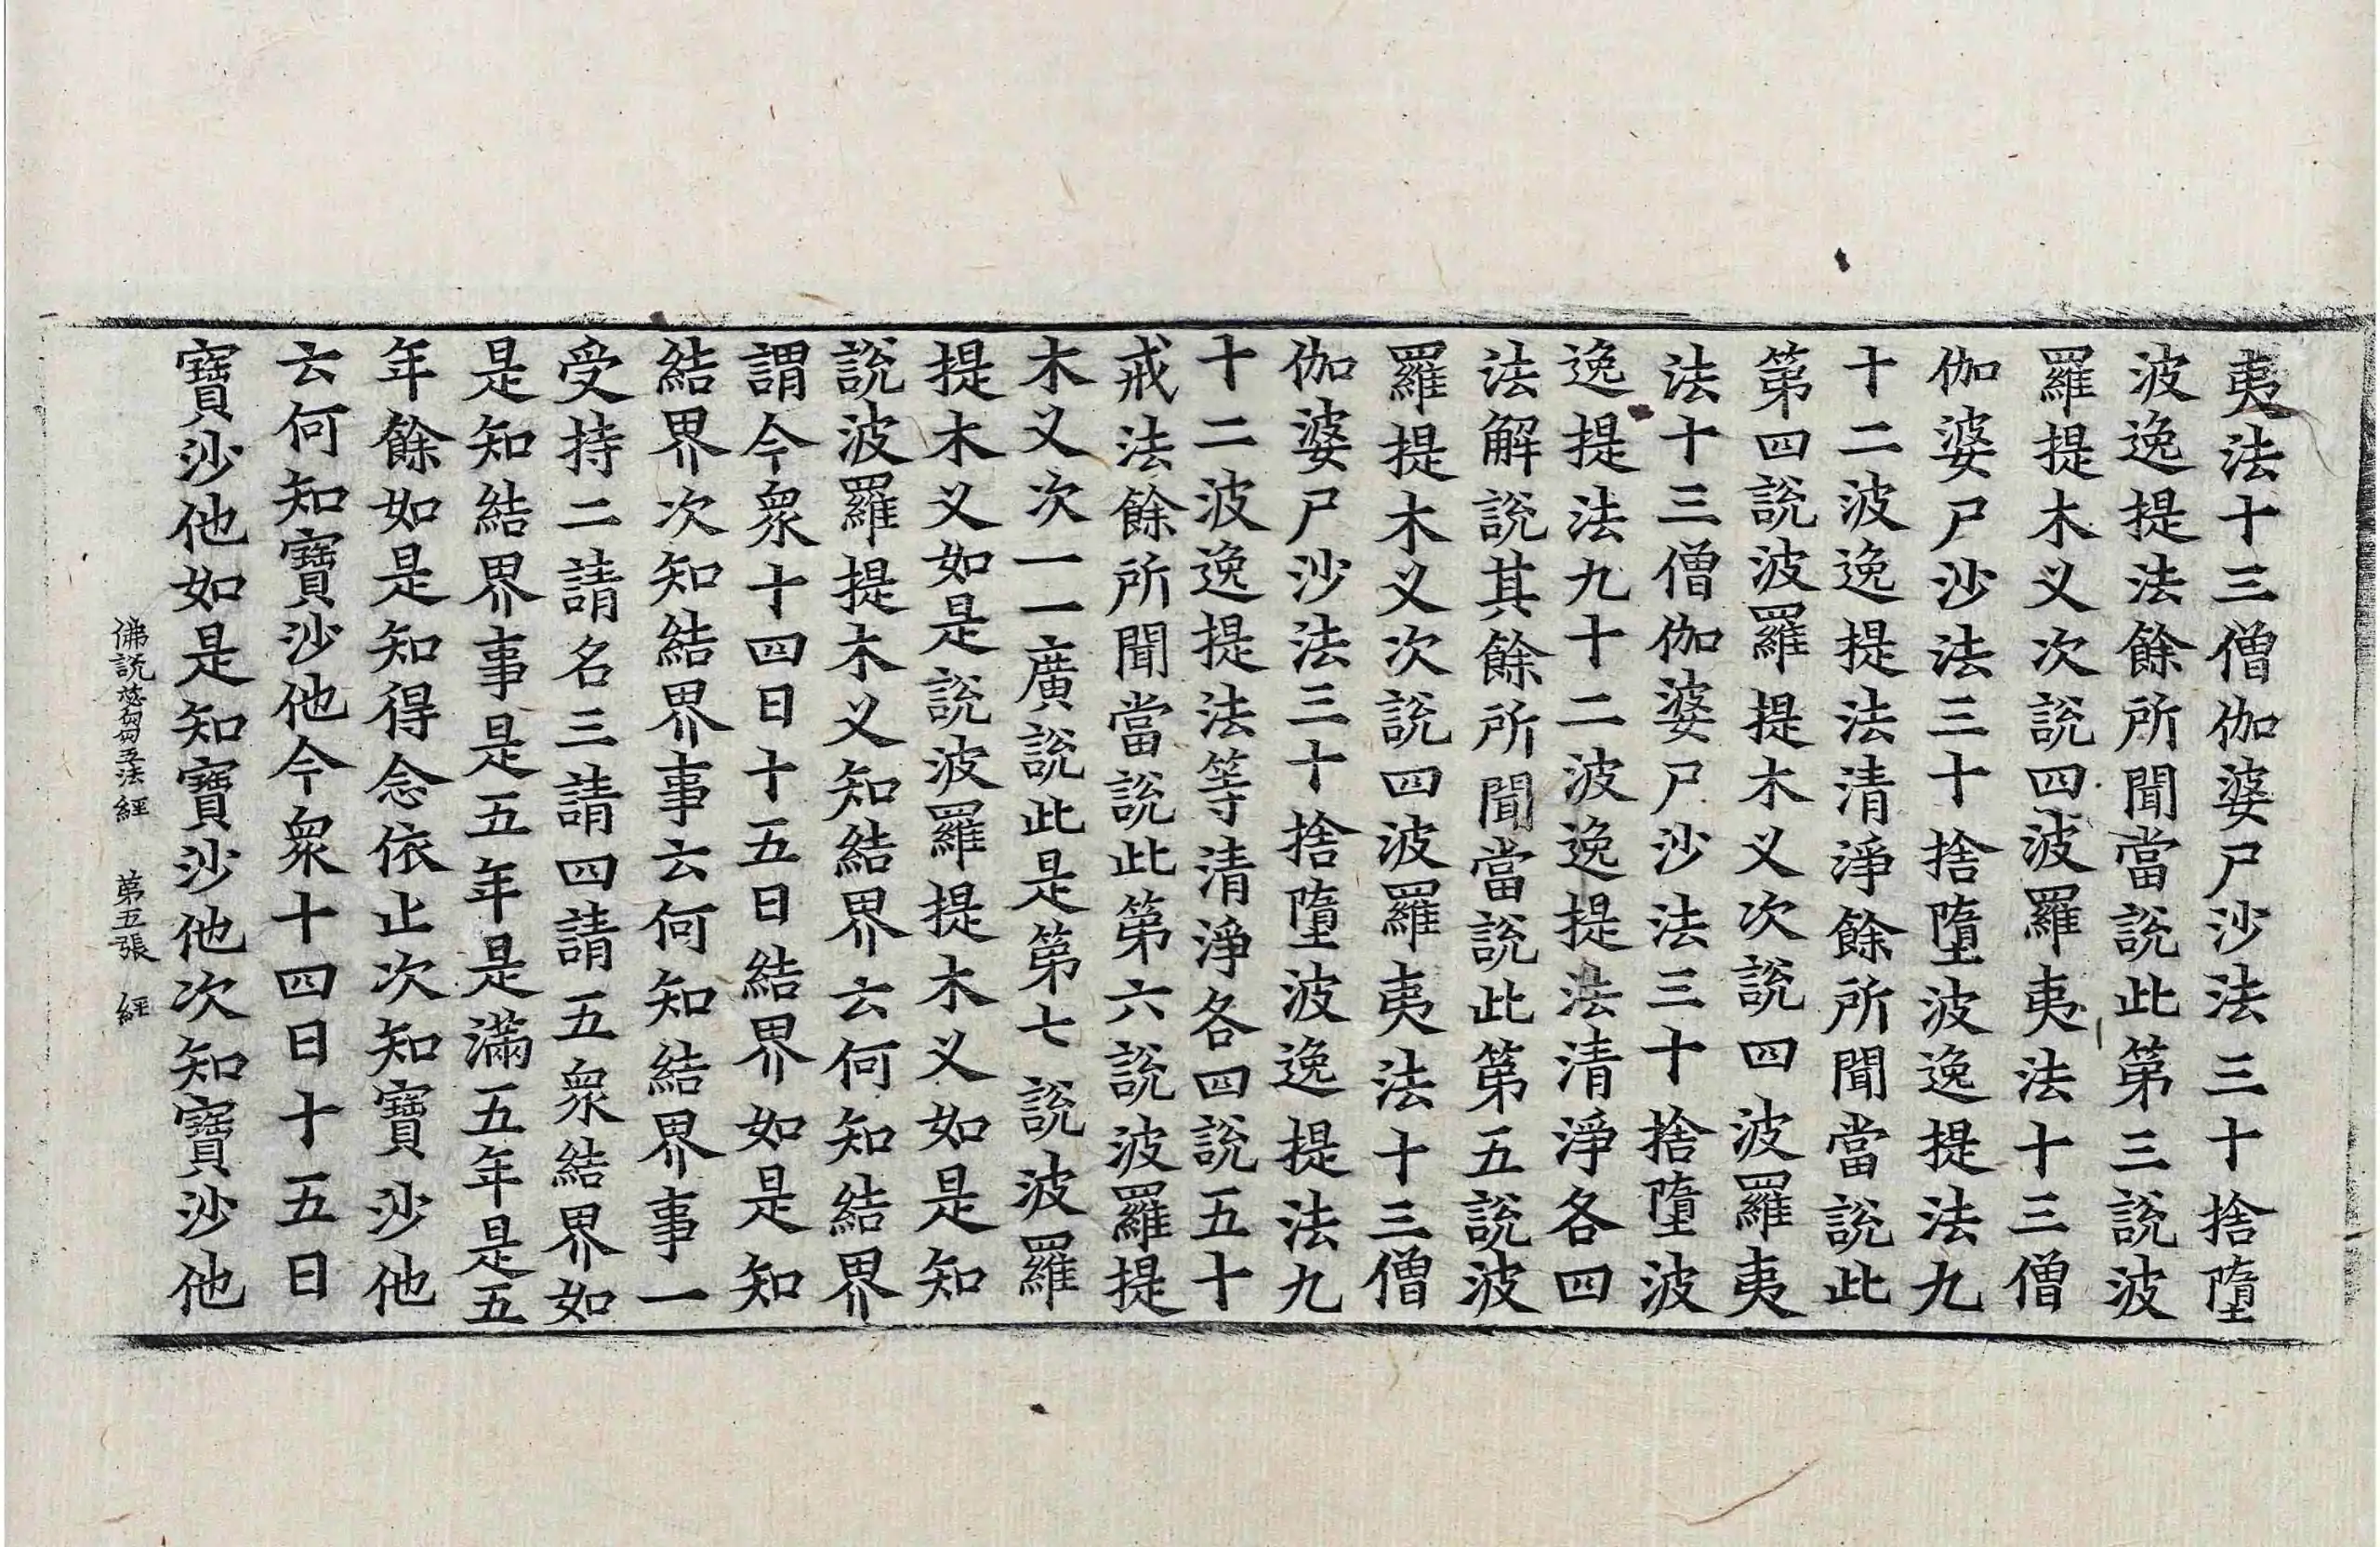 夷法十三僧伽婆尸沙法三十捨墮
波逸提法餘所聞當說此第三說波
羅提木叉次說四波羅夷法十三僧
伽婆尸沙法三十捨墮波逸提法九
十二波逸提法清淨餘所聞當說此
第四說波羅提木叉次說四波羅夷
法十三僧伽婆尸沙法三十捨墮波
逸提法九十二波逸提法清淨各四
法解說其餘所聞當說此第五說波
羅提木叉次說四波羅夷法十三僧
伽婆尸沙法三十捨墮波逸提法九
十二波逸提法等清淨各四說五十
戒法餘所聞當說此第六說波羅提
木叉次一一廣說此是第七說波羅
提木叉如是說波羅提木叉如是知
說波羅提木叉知結界云何知結界
謂今衆十四日十五日結界如是知
結界次知結界事云何知結界事一
受持二請名三請四請五衆結界如
是知結界事是五年是滿五年是五
年餘如是知得念依止次知寶沙他
云何知寶沙他今衆十四日十五日
寶沙他如是知寶沙他次知寶沙他
佛說苾芻五法經　第五張　經